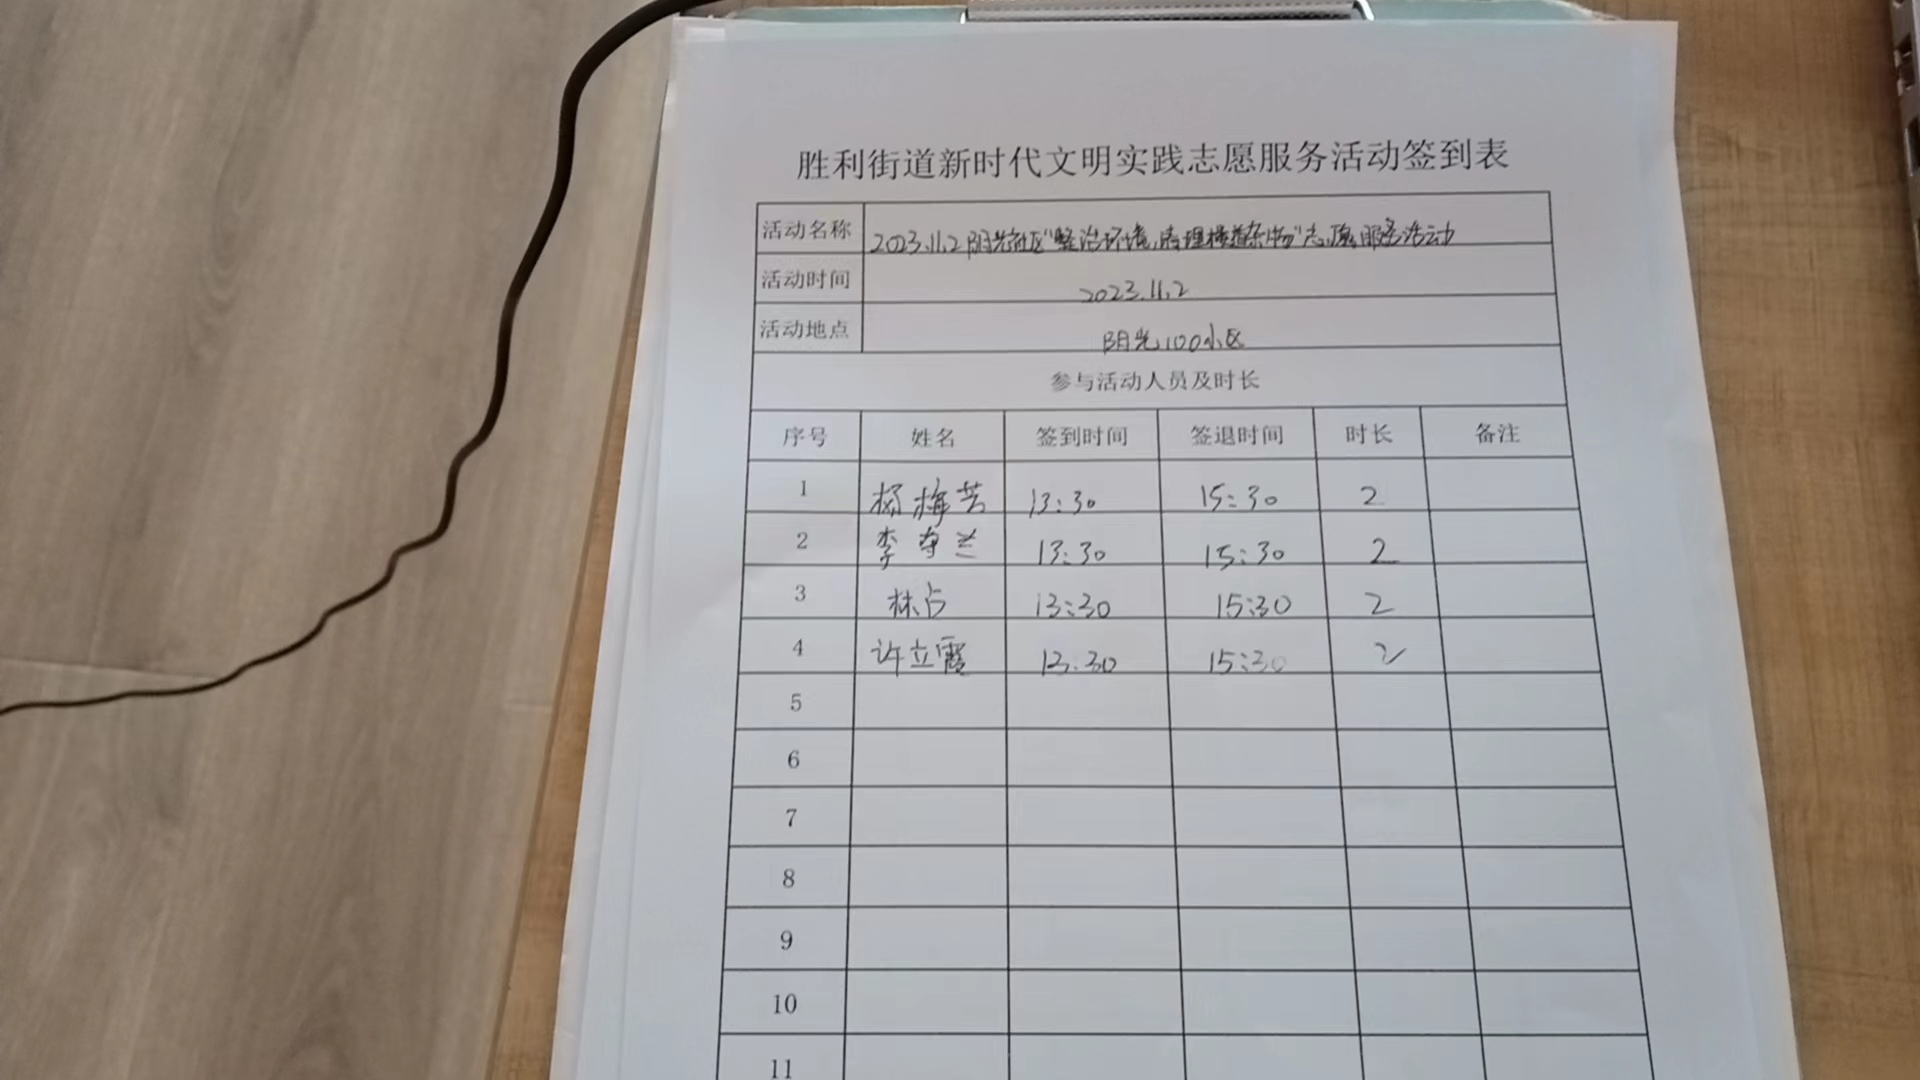 胜利街道新时代文明实践志愿服务活动签到表
活动名称 2023.11.2阳光社区"整治环境,清理楼道杂物"志愿服务活动
活动时间 2023.11.2
活动地点 阳光100小区
参与活动人员及时长
序号 姓名 签到时间 签退时间 时长 备注
1 杨梅芳 13:30 15:30 2
2 李 兰 13:30 15:30 2
3 林占 13:30 15:30 2
4 许立霞 13:30 15:30 2
5
6
7
8
9
10
11